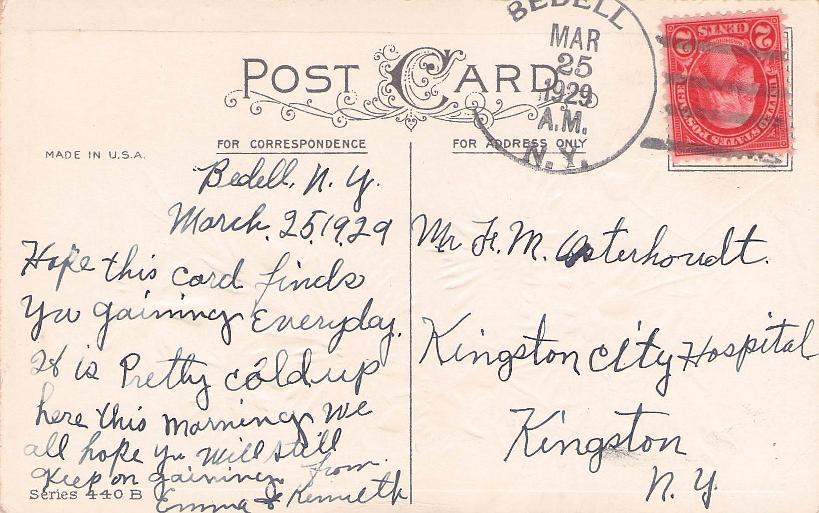 BEDELL
MAR
25
1929
A.M.
N.Y.
2 CENTS 2
UNITED STATES POSTAGE
POST CARD
FOR CORRESPONDENCE
FOR ADDRESS ONLY
MADE IN U.S.A.
Bedell, N.Y.
March. 25, 1929
Hope this card finds
you gaining Everyday.
It is Pretty cold up
here this morning We
all hope you Will still
Keep on gaining from
Emma & Kenneth
Series 440 B
Mr F. M. Osterhoudt.
Kingston City Hospital
Kingston
N.Y.